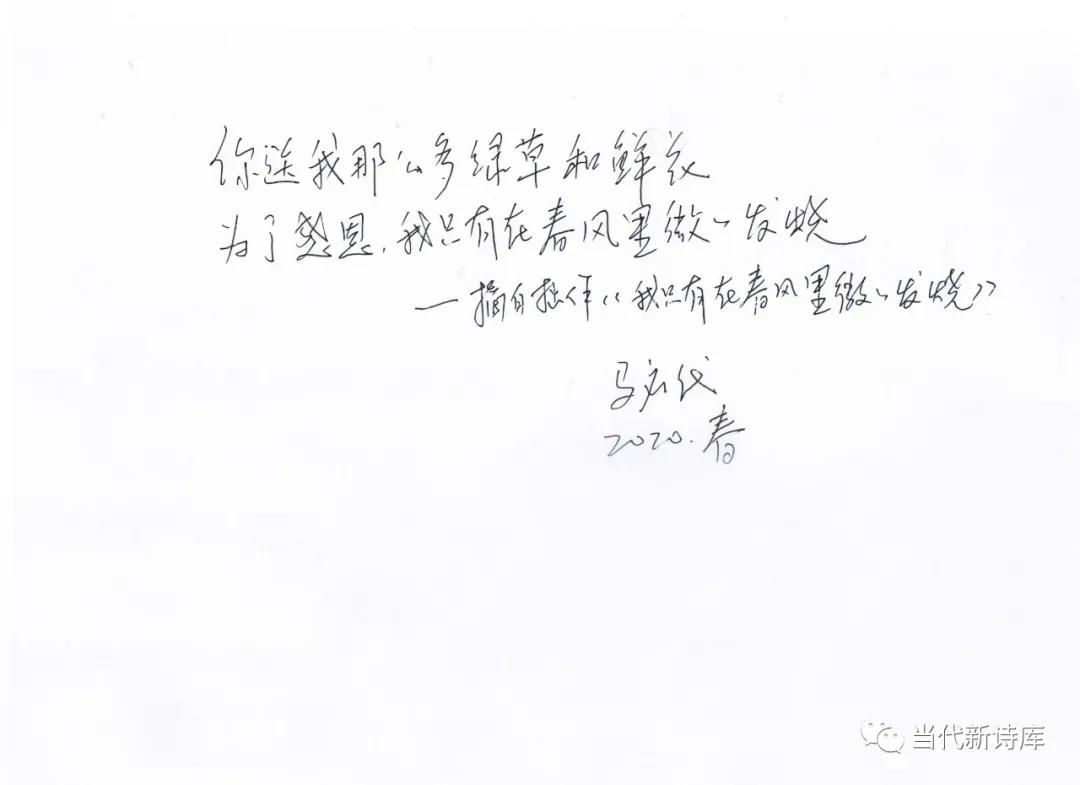 你送我那么多绿草和鲜花
为了感恩，我只有在春风里微微发烧
—摘自拙作《我只有在春风里微微发烧》
马启代
2020.春
当代新诗库